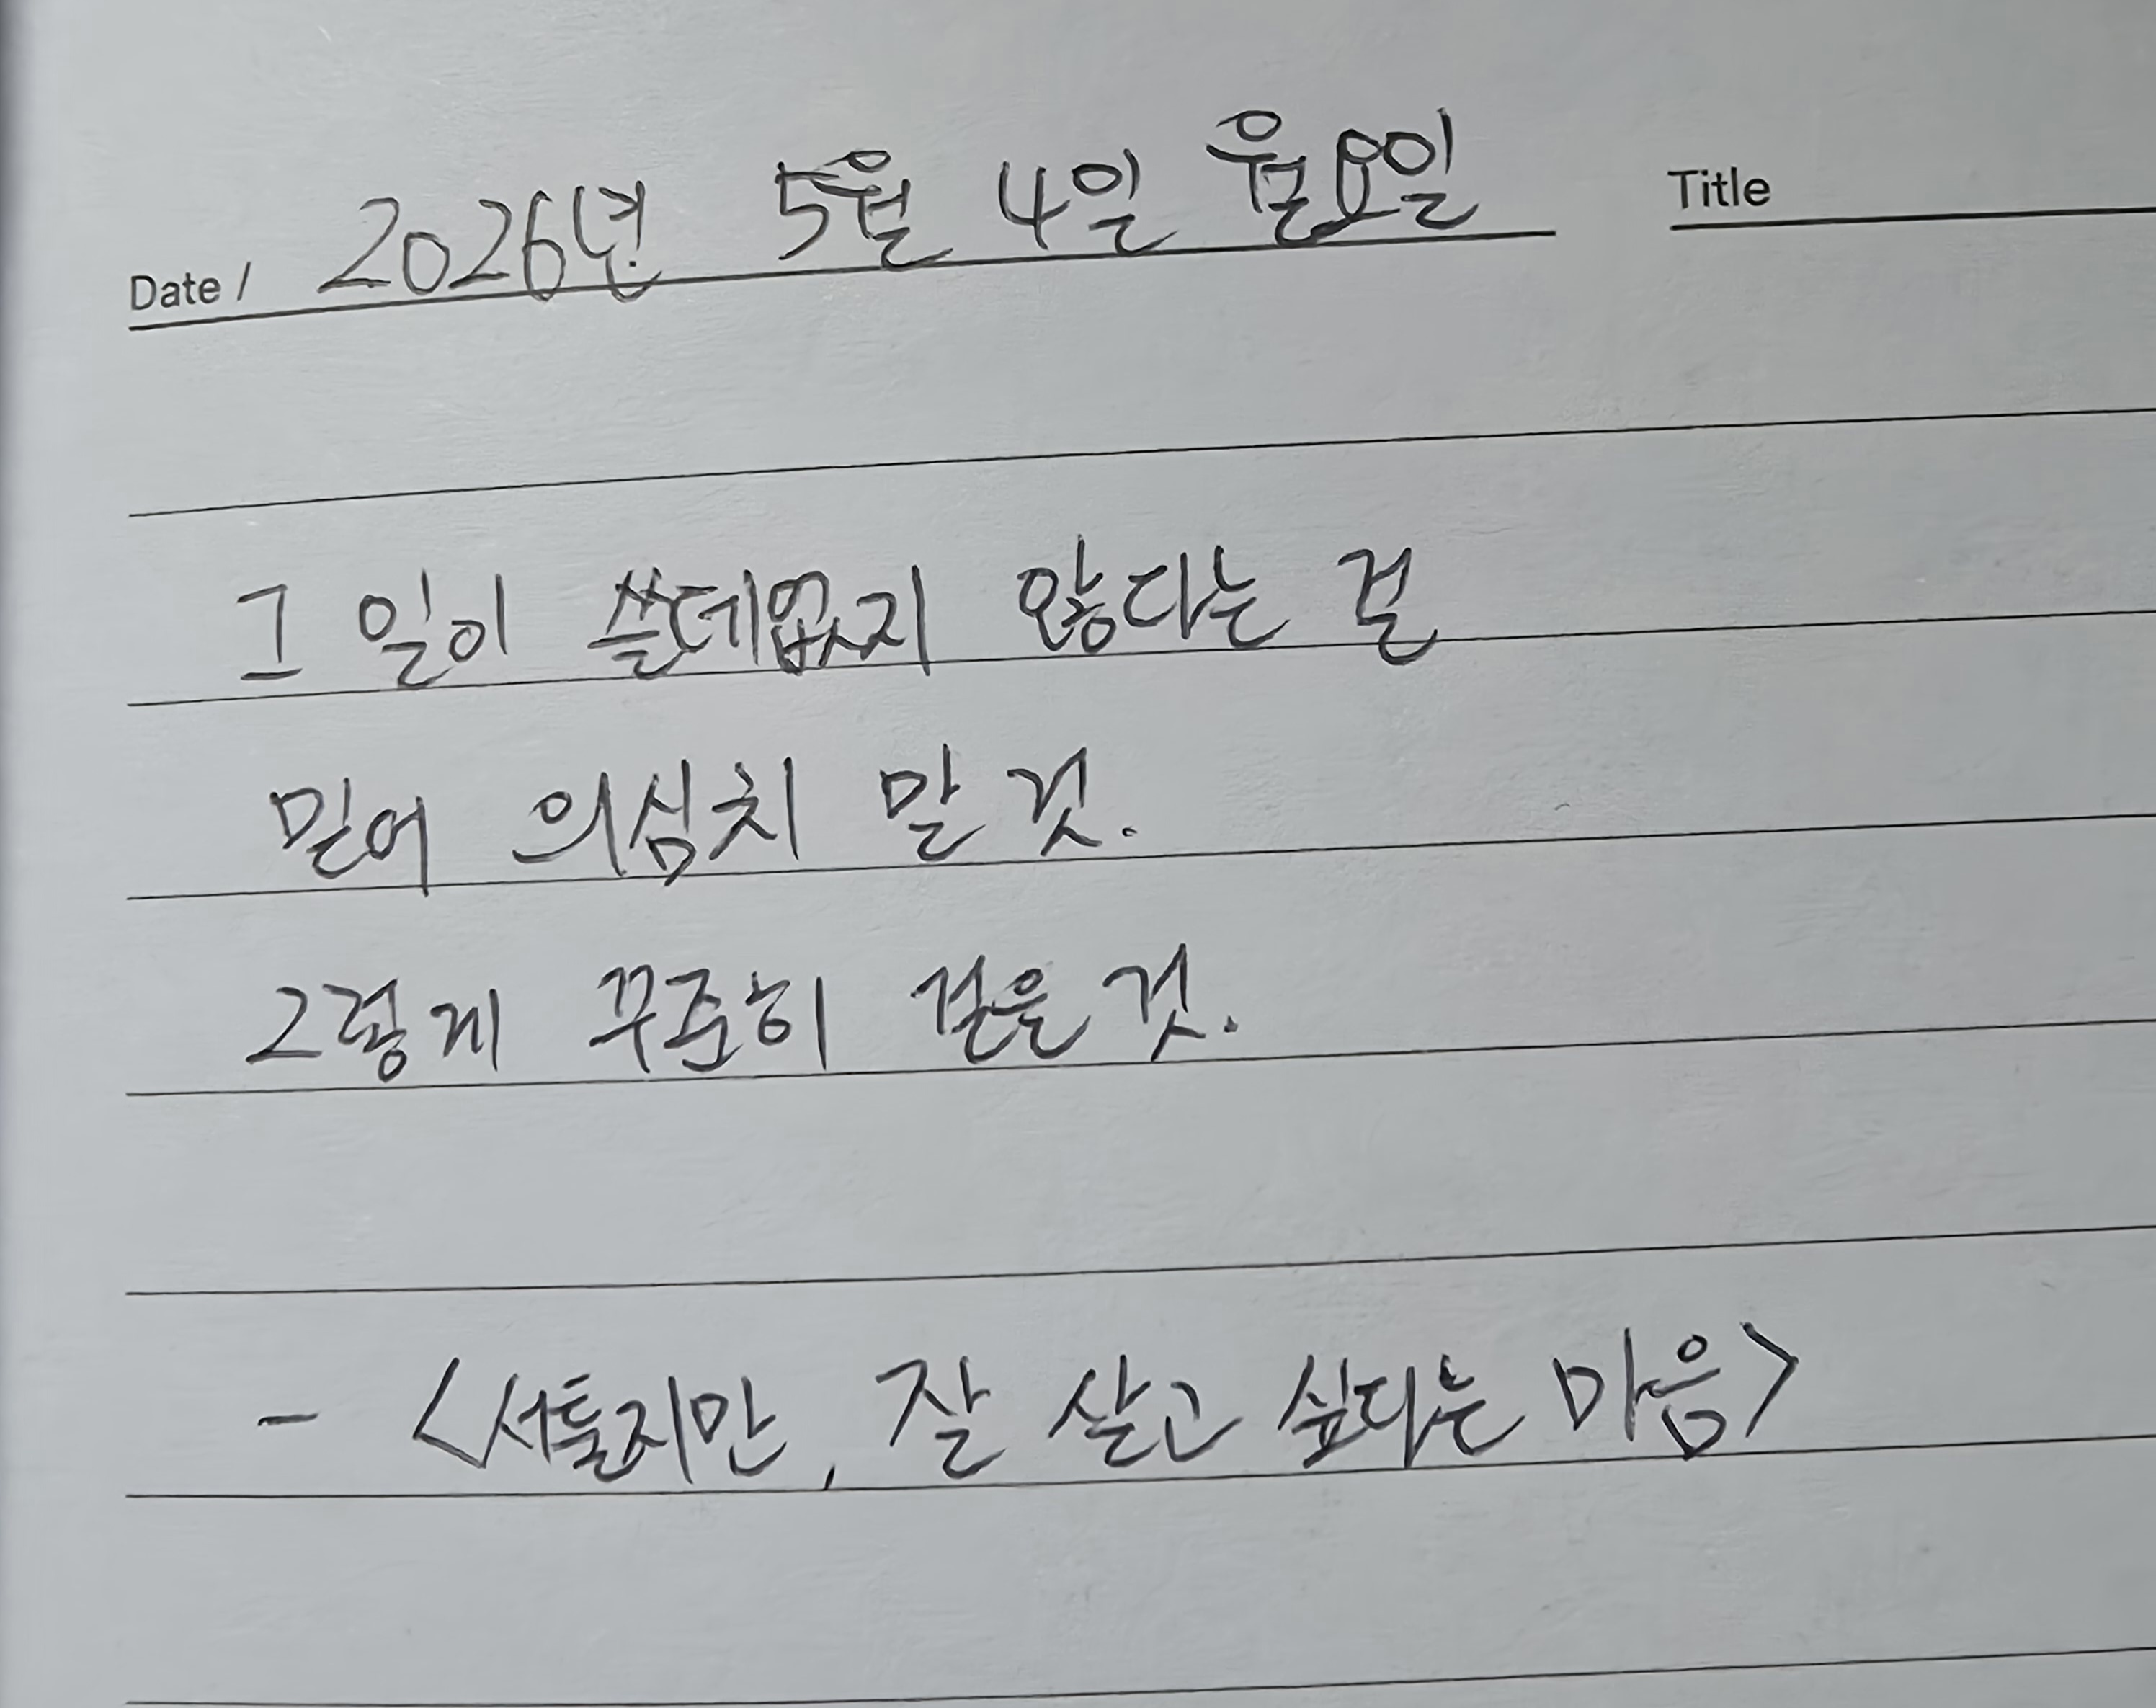 Date / 2026년 5월 4일 월요일 Title
그 일이 쓸데없지 않다는 걸
믿어 의심치 말 것.
그렇게 꾸준히 걸을 것.
- <서툴지만, 잘 살고 싶다는 마음>